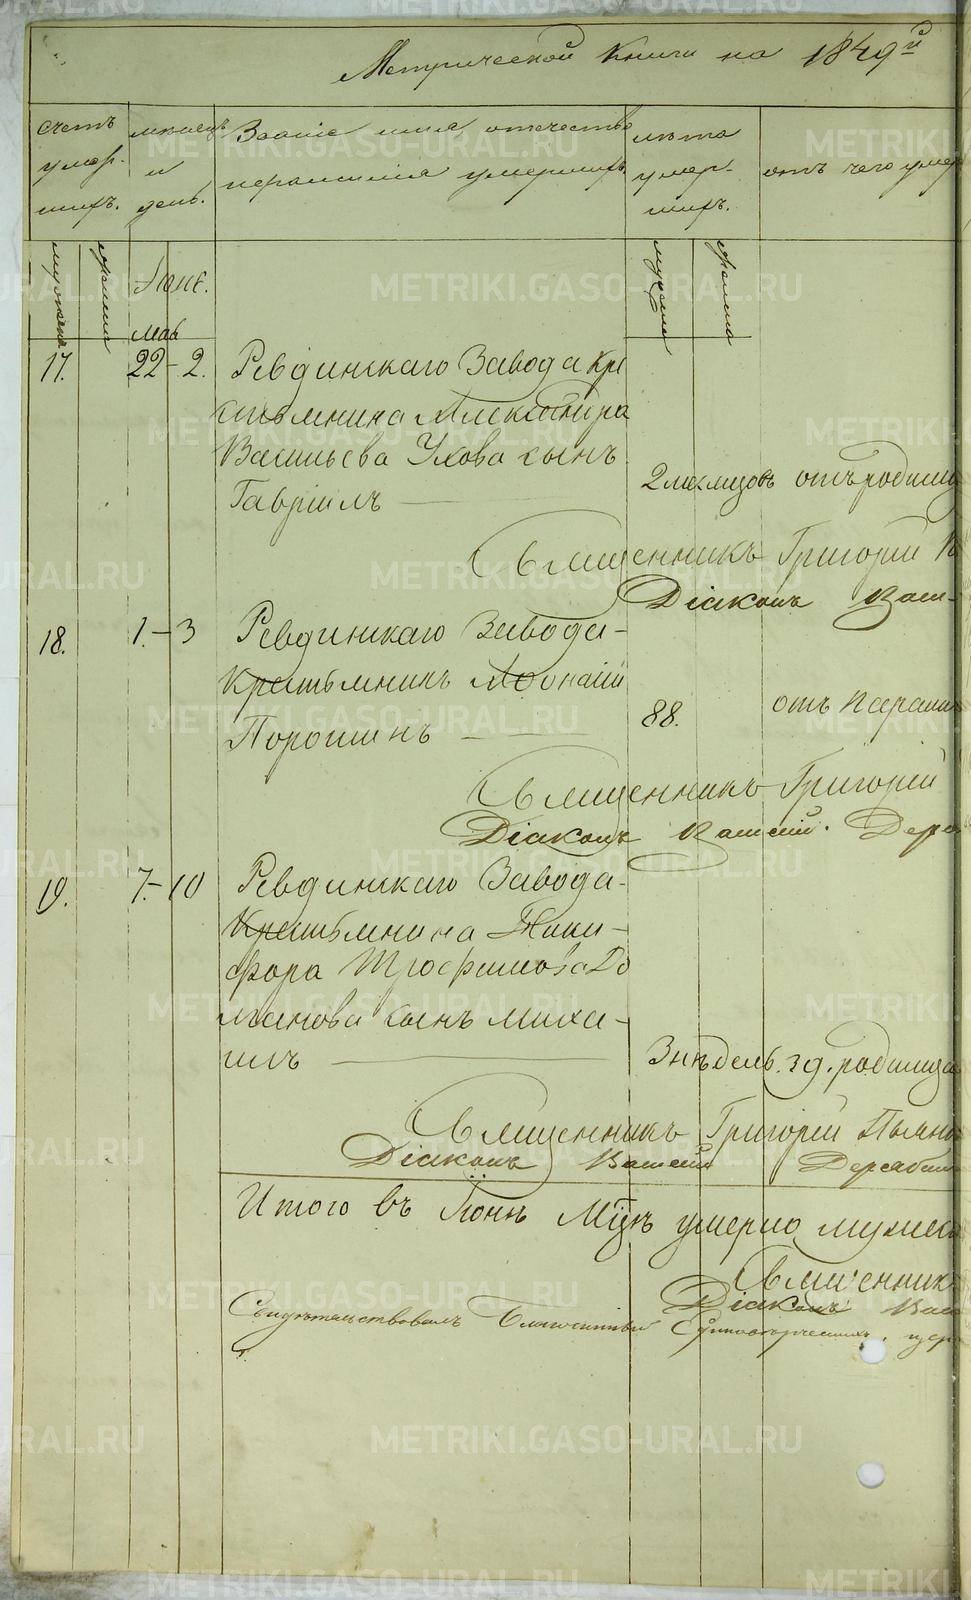 Метрической книги на 1849й
счетъ умер- шихъ.
мѣсецъ и день.
Званіе имя отечество
и фамилія умершихъ.
лѣта умер- шихъ.
отъ чего умер
мужеска женска Іюнь. мужеска женска
маія
17. 22 - 2. Ревдинскаго Завода кре
стьянина Александра
Васильева Ухова сынъ
Гавріилъ 2 месяцовъ отъ родимца
Священникъ Григорій
Діаконъ Васи-
18. 1. - 3 Ревдинскаго Завода-
Крестьянинъ Афонасій
Порошинъ 88. отъ парали
Священникъ Григорій
Діаконъ Василій. Деря
19. 7. - 10 Ревдинскаго Завода-
Крестьянина Ники-
фора Трофимова До
манова сынъ Миха-
илъ 3 недѣль. 3 д. родимца
Священникъ Григорій Пьянк
Діаконъ Василій Дерябин
Итого въ Іюнѣ Мцѣ умерло мужеск
Священник
Діаконъ Вас
Свидѣтельствовалъ Благочинный Единоверческихъ. цер
METRIKI.GASO-URAL.RU